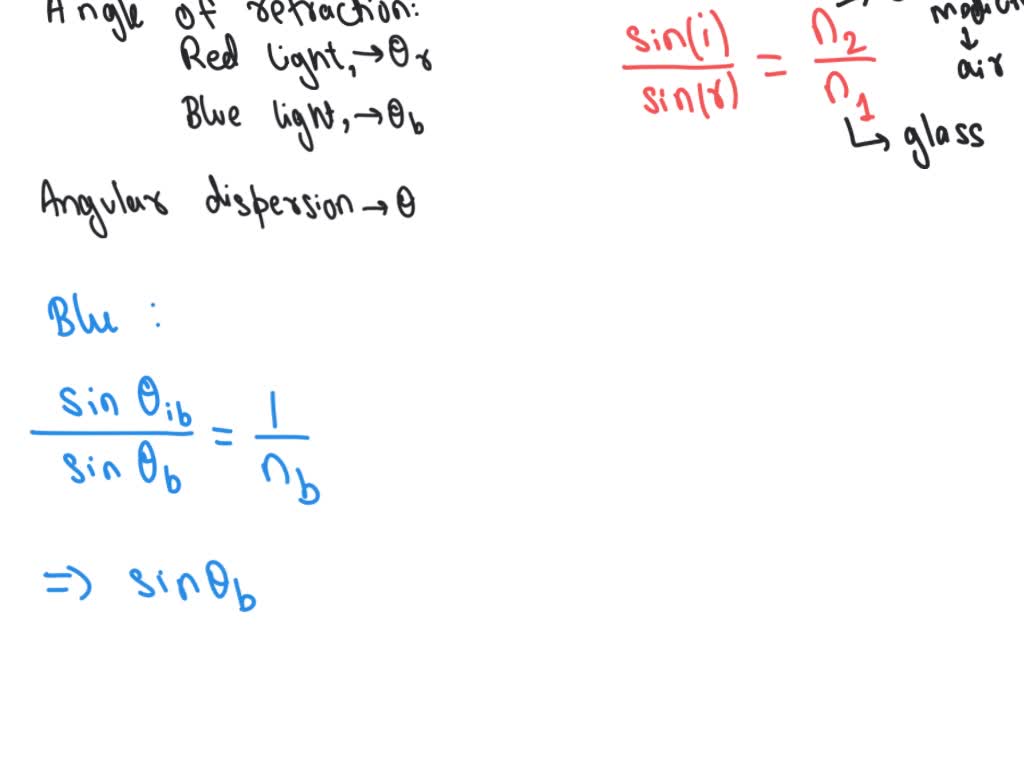 Angle of refraction:
Red light, → θr
Blue light, → θb
Angular dispersion → θ
sin(i)/sin(r) = n2/n1
↓
air
↳ glass
Blu :
sin θib / sin θb = 1/nb
=> sin θb